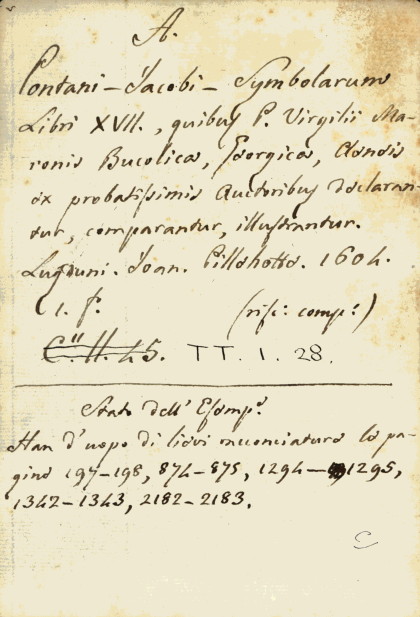 A.
Pontani - Jacobi - Symbolarum
Libri XVII., quibus P. Virgilii Ma-
ronis Bucolica, Georgica, Aeneis
ex probatissimis Auctoribus declaran-
tur, comparantur, illustrantur.
Lugduni. Joan. Pillehotte. 1604.
1. f. (risc: comp:)
C. H. 45. TT. 1. 28.
Stato dell' Esemp.e
Han d'uopo di lievi racconciature le pa-
gine 197-198, 874-875, 1294-1295,
1342-1343, 2182-2183.
C